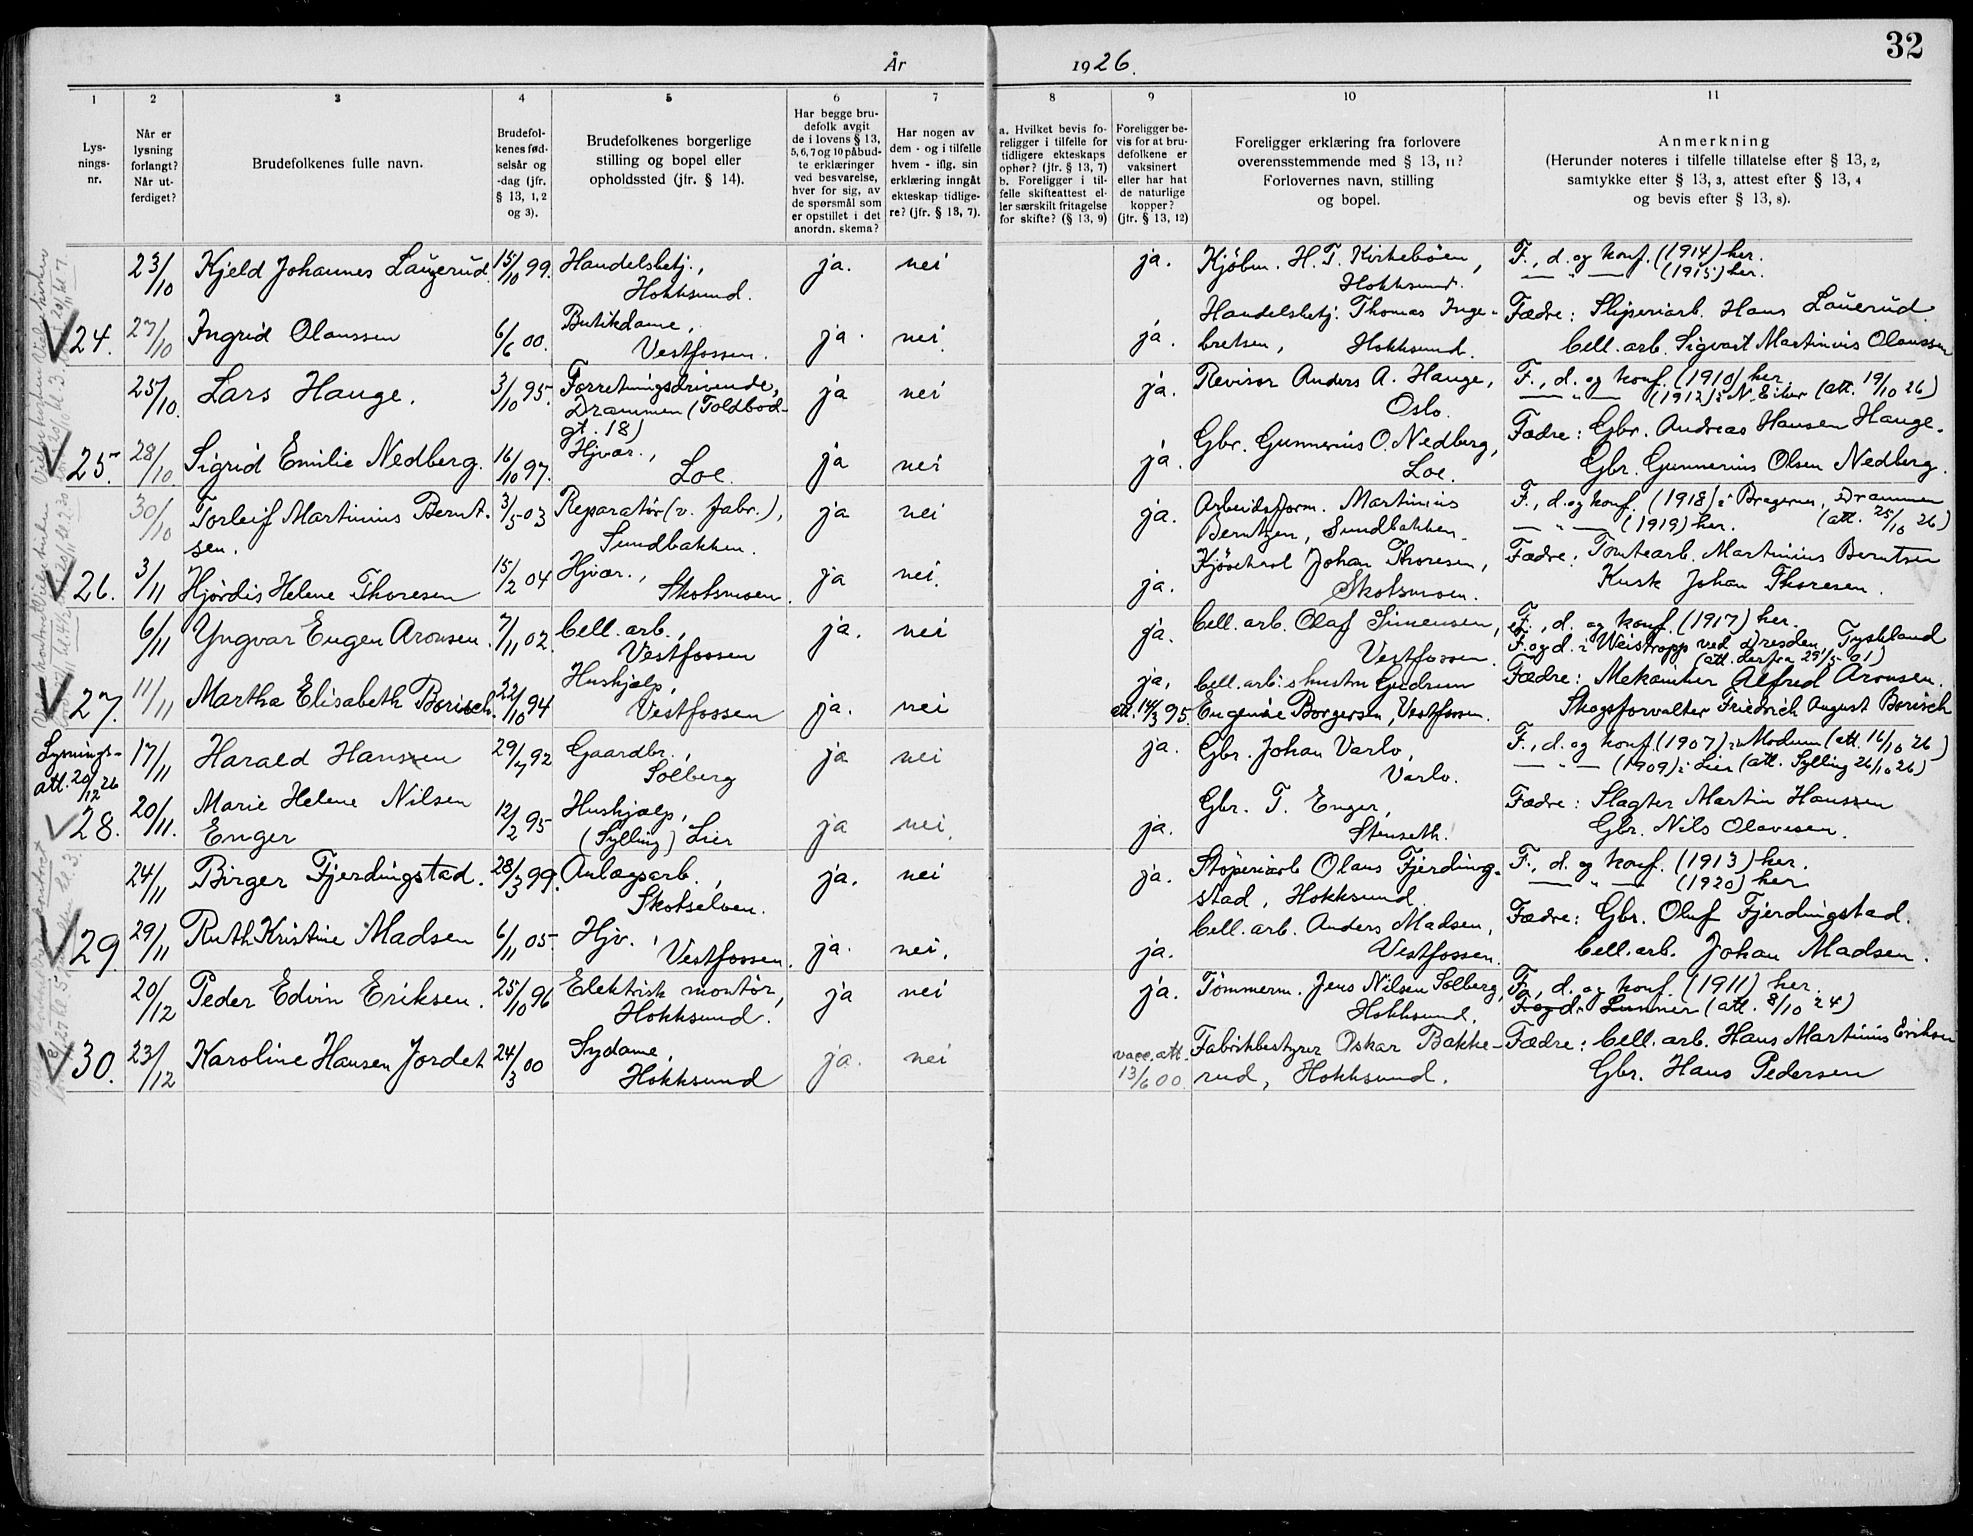 32
År 1926.
1 2 3 4 5 6 7 8 9 10 11
Lys-
nings-
nr.
Når er
lysning
forlangt?
Når ut-
ferdiget?
Brudefolkenes fulle navn.
Brudefol-
kenes fød-
selsår og
-dag (jfr.
§ 13, 1, 2
og 3).
Brudefolkenes borgerlige
stilling og bopel eller
opholdssted (jfr. § 14).
Har begge bru-
defolk avgit
de i lovens § 13,
5, 6, 7 og 10 påbud-
te erklæringer
ved besvarelse,
hver for sig, av
de spørsmål som
er opstillet i det
anordn. skema?
Har nogen av
dem - og i tilfelle
hvem - iflg. sin
erklæring inngåt
ekteskap tidlige-
re? (jfr. § 13, 7).
a. Hvilket bevis fo-
religger i tilfelle for
tidligere ekteskaps
ophør? (jfr. § 13, 7)
b. Foreligger i til-
felle skifteattest el-
ler særskilt fritagelse
for skifte? (§ 13, 9)
Foreligger be-
vis for at bru-
defolkene er
vaksinert
eller har hat
de naturlige
kopper?
(jfr. § 13, 12)
Foreligger erklæring fra forlovere
overensstemmende med § 13, 11?
Forlovernes navn, stilling
og bopel.
Anmerkning
(Herunder noteres i tilfelle tillatelse efter § 13, 2,
samtykke efter § 13, 3, attest efter § 13, 4
og bevis efter § 13, 8).
23/10 Kjeld Johannes Lauerud 15/10 99. Handelsbetj., ja. nei ja. Kjøbm. H. T. Kirkebøen, F., d. og konf. (1914) her.
Hokksund. Hokksund. — " — (1915) her.
24. 27/10 Ingrid Olaussen 6/6 00. Butikdame, ja. nei. ja. Handelsbetj. Thomas Inge- Fædre: Sliperiarb. Hans Lauerud.
Vestfossen. bretsen, Hokksund. Cell. arb. Sigvart Martinius Olaussen
25/10. Lars Hauge. 3/10 95. Forretningsdrivende, ja nei ja. Revisor Anders A. Hauge, F., d. og konf. (1910) her.
Drammen (Toldbod- Oslo. — " — (1912) i N. Eiker (att. 19/10 26)
gt. 18)
25. 28/10 Sigrid Emilie Nedberg. 16/10 97. Hjvær., ja nei ja. Gbr. Gunnerius O. Nedberg, Fædre: Gbr. Andreas Hansen Hauge.
Loe. Loe. Gbr. Gunnerius Olsen Nedberg.
30/10 Torleif Martinius Bernt- 3/5 03 Reparatør (v. fabr.), ja nei ja. Arbeidsform. Martinius F., d. og konf. (1918) i Bragernes, Drammen
sen. Sundbakken. Berntzen, Sundbakken. — " — (1919) her. (att. 25/10 26)
26. 3/11 Hjørdis Helene Thoresen 15/2 04 Hjvær., ja nei. ja. Johan Thoresen, Fædre: Tomtearb. Martinius Berntsen
Skotsmoen. Skotsmoen. Kusk Johan Thoresen.
6/11 Yngvar Eugen Aronsen. 7/11 02. Cell. arb., ja. nei ja. Cell. arb. Olaf Simensen, F., d. og konf. (1917) her.
Vestfossen Vestfossen. F. og d. i Weistropp ved Dresden, Tyskland
(att. derfra 29/5 01)
27. 11/11 Martha Elisabeth Borisch. 22/10 94 Hushjælp, ja. nei ja, Cell. arb.s hustru Gudrun Fædre: Mekaniker Alfred Aronsen.
Vestfossen att. 14/3 95. Eugenie Borgersen, Vestfossen. Skogsforvalter Friedrich August Borisch
Lysnings-
att. 20/12 26
17/11 Harald Hansen 29/7 92 Gaardbr., ja nei ja. Gbr. Johan Varlo, F., d. og konf. (1907) i Modum (att. 16/10 26)
Solberg Varlo. — " — (1909) i Lier (att. Sylling 26/10 26)
28. 20/11. Marie Helene Nilsen 12/2 95 Hushjælp, ja nei. ja. Gbr. T. Enger, Fædre: Slagter Martin Hansen
Enger (Sylling) Lier Stenseth. Gbr. Nils Olavesen.
24/11 Birger Fjerdingstad. 28/3 99. Anlægsarb., ja. nei ja. Støperiarb Olaus Fjerding- F., d. og konf. (1913) her.
Skotselven. stad, Hokksund. — " — (1920) her
29. 29/11 Ruth Kristine Madsen 6/11 05. Hjv., ja. nei. ja. Cell. arb. Anders Madsen, Fædre: Gbr. Oluf Fjerdingstad.
Vestfossen. Vestfossen. Cell. arb. Johan Madsen.
20/12 Peder Edvin Eriksen. 25/10 96 Elektrisk montør, ja nei ja. Tømmerm. Jens Nilsen Solberg, F., d. og konf. (1911) her.
Hokksund. Hokksund. F. og d. i Lunner (att. 8/10 24)
30. 23/12 Karoline Hansen Jordet 24/3 00 Sydame, ja. nei vacc. att. 13/6 00. Fabrikbestyrer Oskar Bakke- Fædre: Cell. arb. Hans Martinius Eriksen
Hokksund rud, Hokksund. Gbr. Hans Pedersen